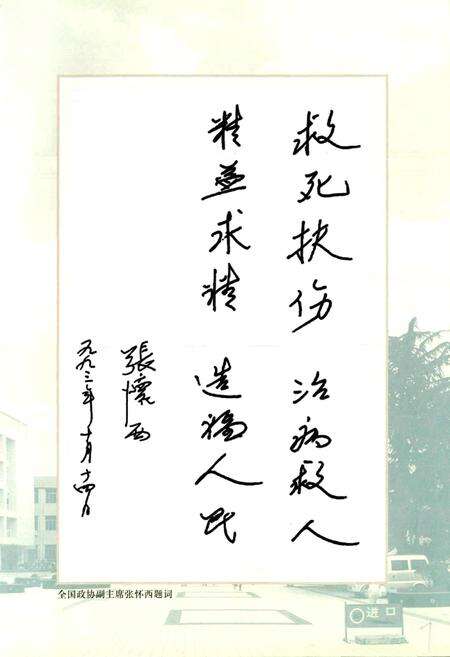 救死扶伤 治病救人
精益求精 造福人民
張懷西
一九九三年十月十四日
全国政协副主席张怀西题词
进口